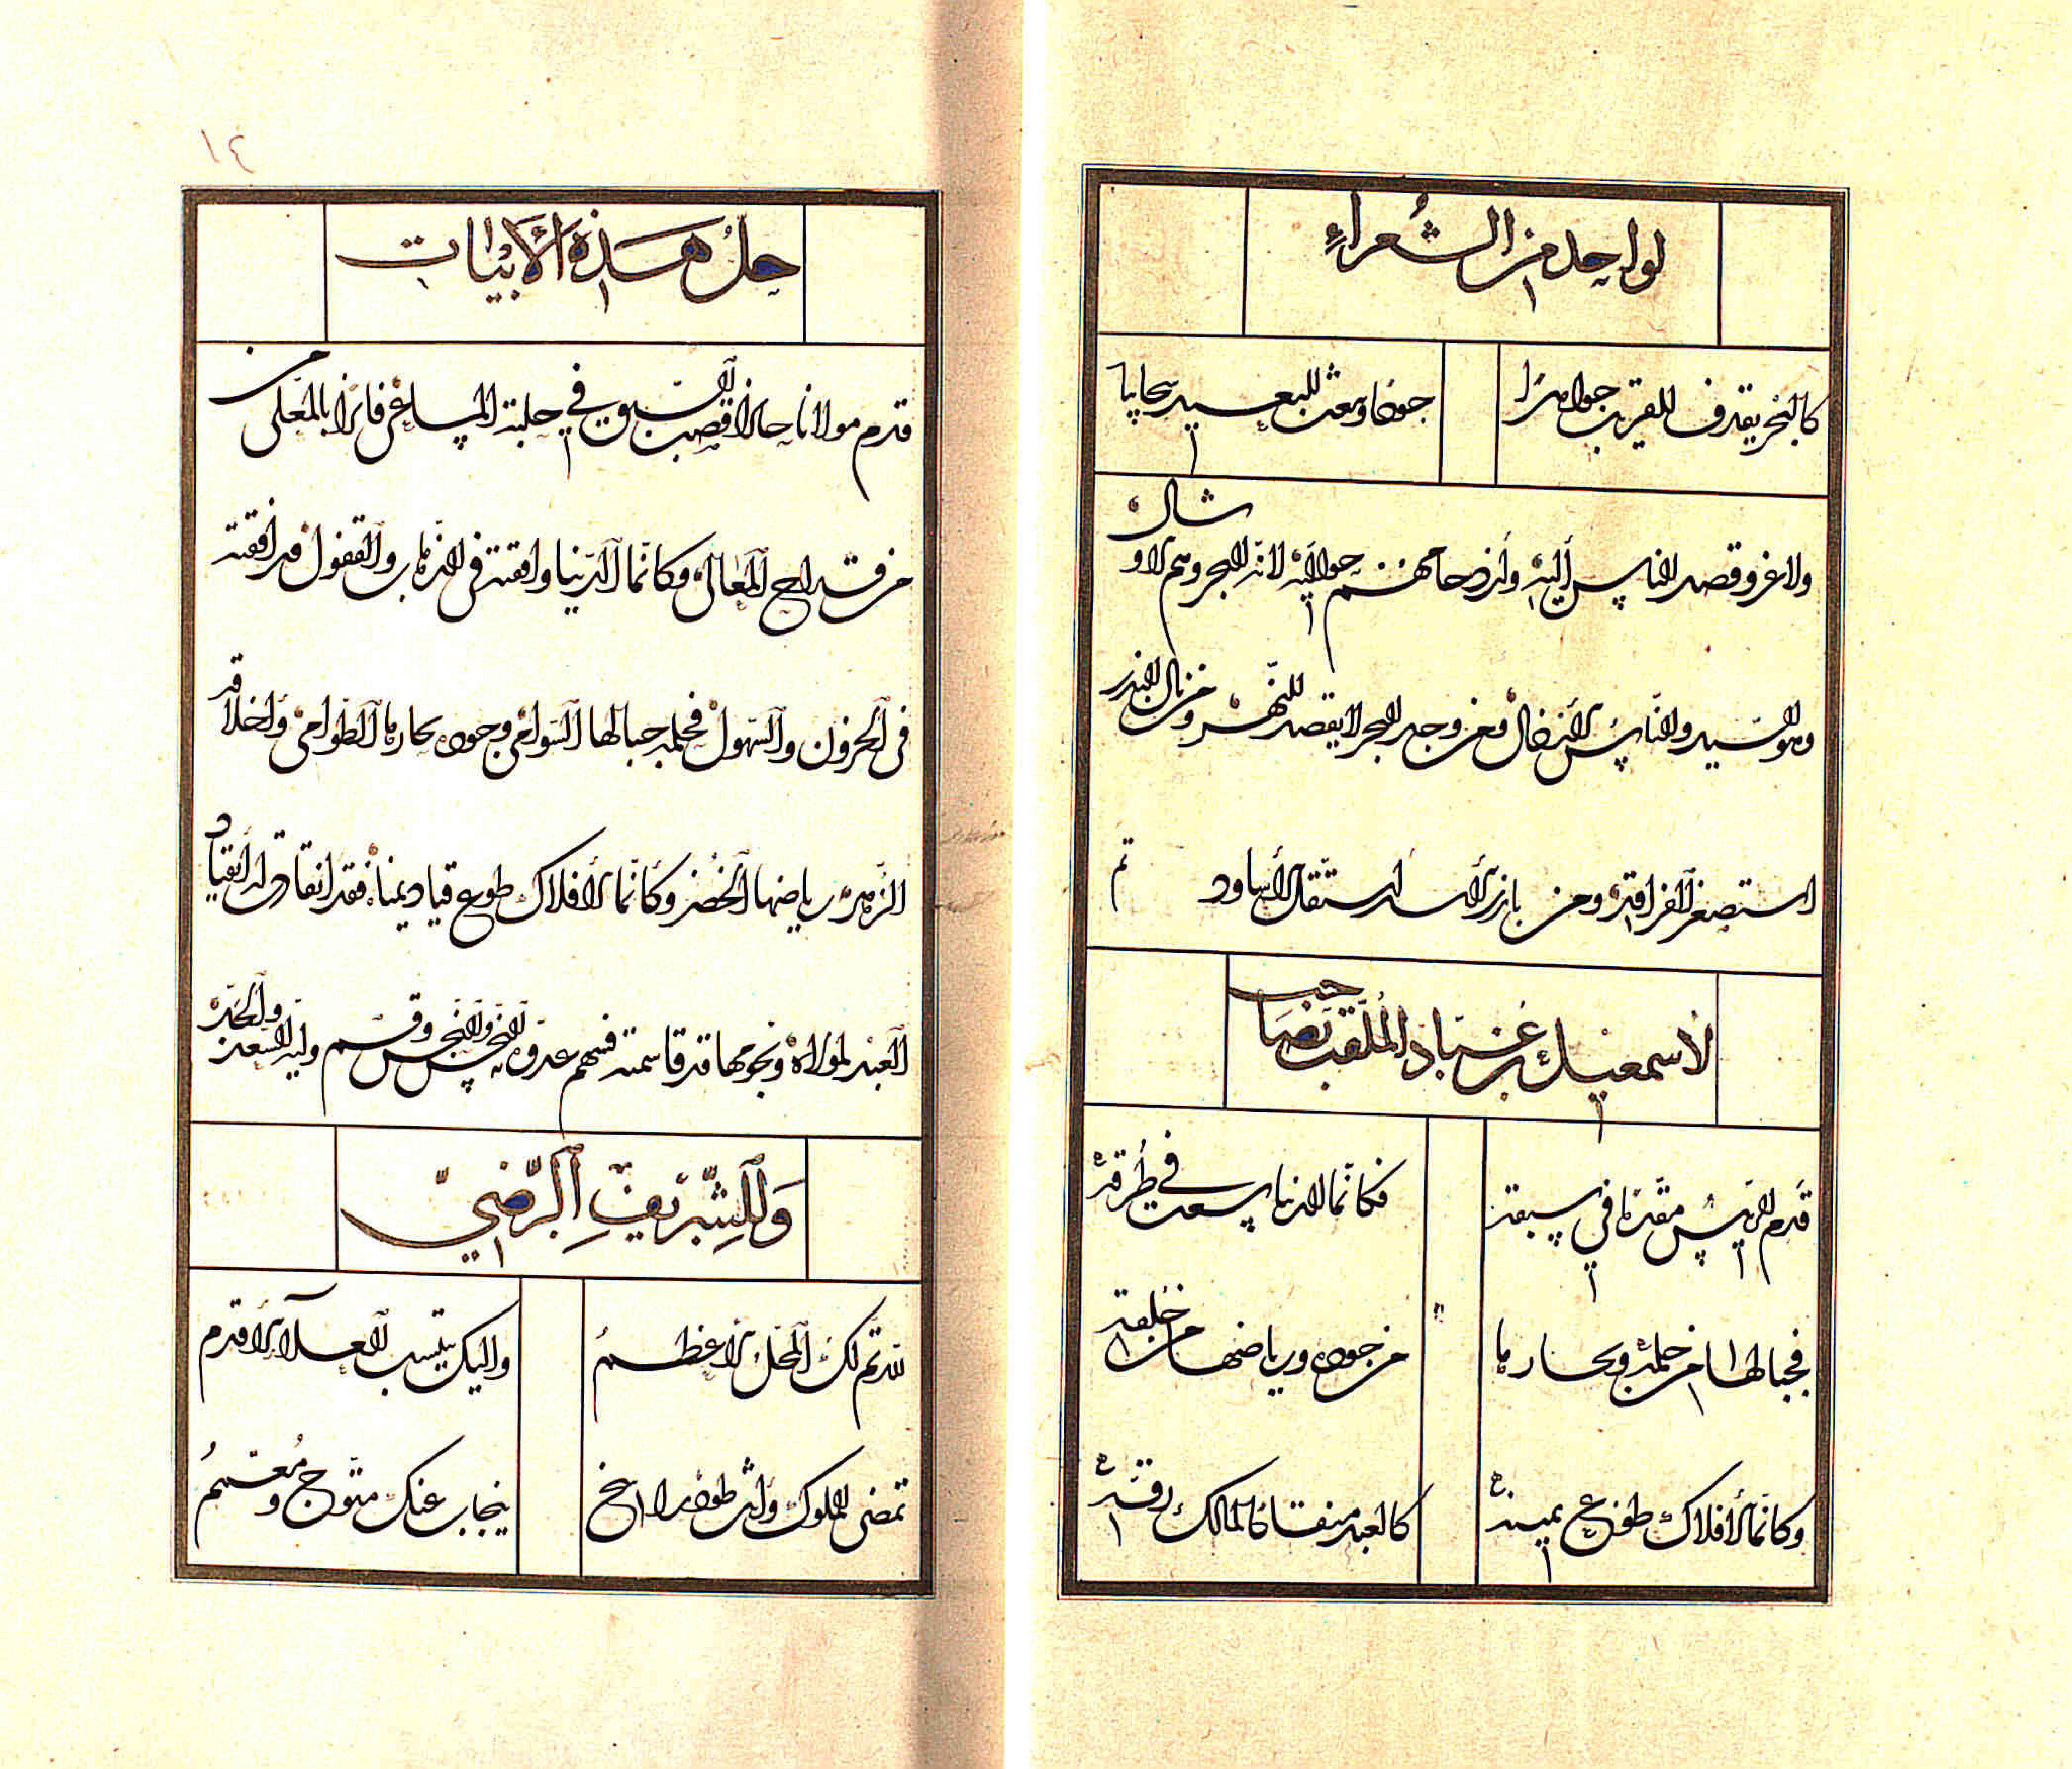 لواحد من الشعراء
كالبحر يقذف للقريب جواهرا جودا ويبعث للبعيد سحايبا
ولا غرو قصد الناس إليه وازدحامهم حواليه لانه البحر وهم الاوشال
وهو السيد والناس الأنذال ومن وجد البحر لا يقصد النهر ومن نال البدر
استصغر الفراقد ومن بارز الأسد استقل الأساود تم
لاسمعيل بن عباد الملقب بصاحب
قدم الرئيس مقدما في سبقه فكأنما الدنيا سعت في طرقه
فجبالها من حلمه وبحارها من جوده ورياضها من خلقه
وكأنما الأفلاك طوع يمينه كالعبد منقادا لمالك رقه
١٤
حل هذه الأبيات
قدم مولانا حائزا قصب السبق في حلبة المساعي فائزا بالمعلى من
من قداح المعالي وكانما الدنيا وافقته في الذهاب والقفول ورافقته
في الحزون والسهول فحلمه جبالها الشوامخ وجوده بحارها الطوامي وأخلاقه
الزهر رياضها الخضر وكانما الأفلاك طوع قياد يمناه فقد انقادت له انقياد
العبد لمولاه ونجومها قد قاسمته فسهم عدوه النحس وقسم وليه السعد
وللشريف الرضي
لله تم لك المحل الأعظم واليك ينتسب العلاء الأقدم
تمضى الملوك وانت طود راسخ ينجاب عنك متوج ومعمم